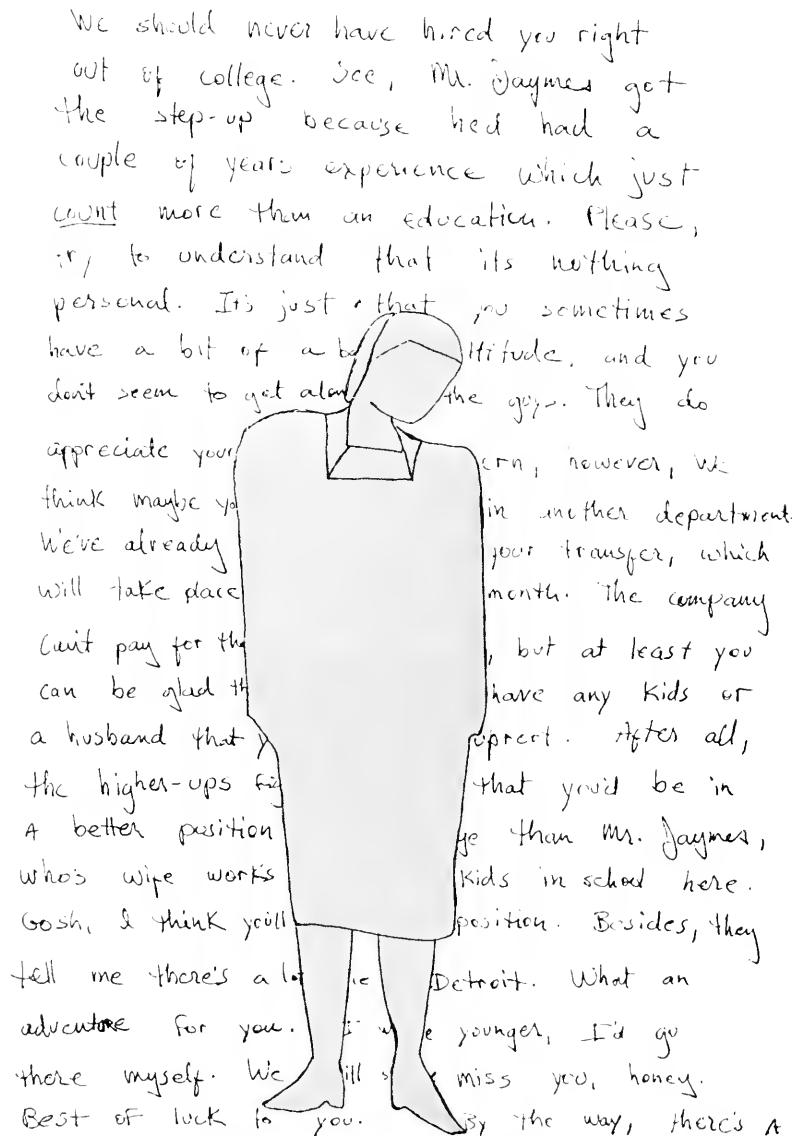 We should never have hired you right
out of college. See, Mr. Jaymes got
the step-up because he'd had a
couple of years experience which just
count more than an education. Please,
try to understand that its nothing
personal. It's just that you sometimes
have a bit of a b ttitude, and you
don't seem to get alon the guys. They do
appreciate your ern, however, we
think maybe yo in another department.
We've already your transfer, which
will take place month. The company
can't pay for the , but at least you
can be glad th have any kids or
a husband that y upport. After all,
the higher-ups fig that you'd be in
A better position ge than Mr. Jaymes,
who's wife works kids in school here.
Gosh, I think you'll position. Besides, they
tell me there's a lo Detroit. What an
adventure for you. younger, I'd go
there myself. We ill miss you, honey.
Best of luck to you. By the way, there's A